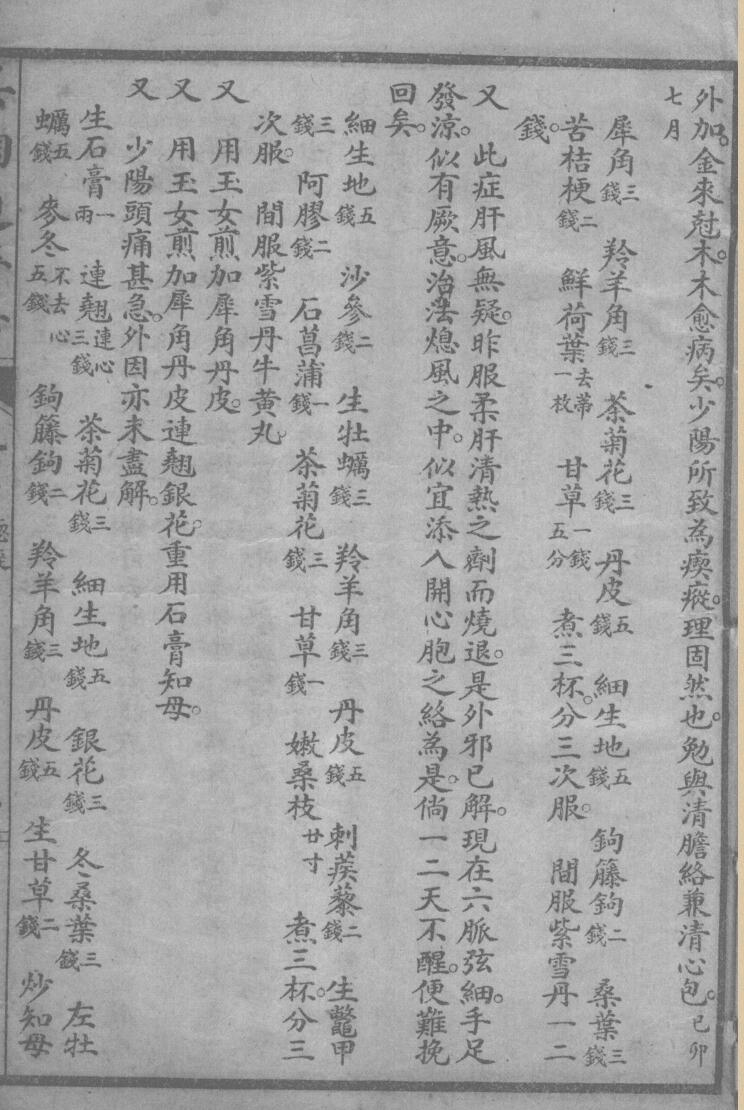 外加。金來尅木。木愈病矣。少陽所致為瘈瘲。理固然也。勉與清膽絡兼清心包。己卯
七月
犀角三錢　羚羊角三錢　茶菊花三錢　丹皮五錢　細生地五錢　鉤籐鉤二錢　桑葉三錢
苦桔梗二錢　鮮荷葉去蒂一枚　甘草一錢五分　煮三杯。分三次服。　間服紫雪丹一二
錢。
又　此症肝風無疑。昨服柔肝清熱之劑而燒退。是外邪已解。現在六脈弦細。手足
發涼。似有厥意。治法熄風之中。似宜添入開心胞之絡為是。倘一二天不醒。便難挽
回矣。
細生地五錢　沙參二錢　生牡蠣三錢　羚羊角三錢　丹皮五錢　刺蒺藜二錢　生鼈甲
三錢　阿膠二錢　石菖蒲一錢　茶菊花三錢　甘草一錢　嫩桑枝廿寸　煮三杯。分三
次服。　間服紫雪丹牛黄丸。
又　用玉女煎加犀角丹皮。
又　用玉女煎加犀角丹皮連翹銀花。重用石膏知母。
又　少陽頭痛甚急。外因亦未盡解。
生石膏一兩　連翹連心三錢　茶菊花三錢　細生地五錢　銀花三錢　冬桑葉三錢　左牡
蠣五錢　麥冬不去心五錢　鉤籐鉤二錢　羚羊角三錢　丹皮五錢　生甘草二錢　炒知母